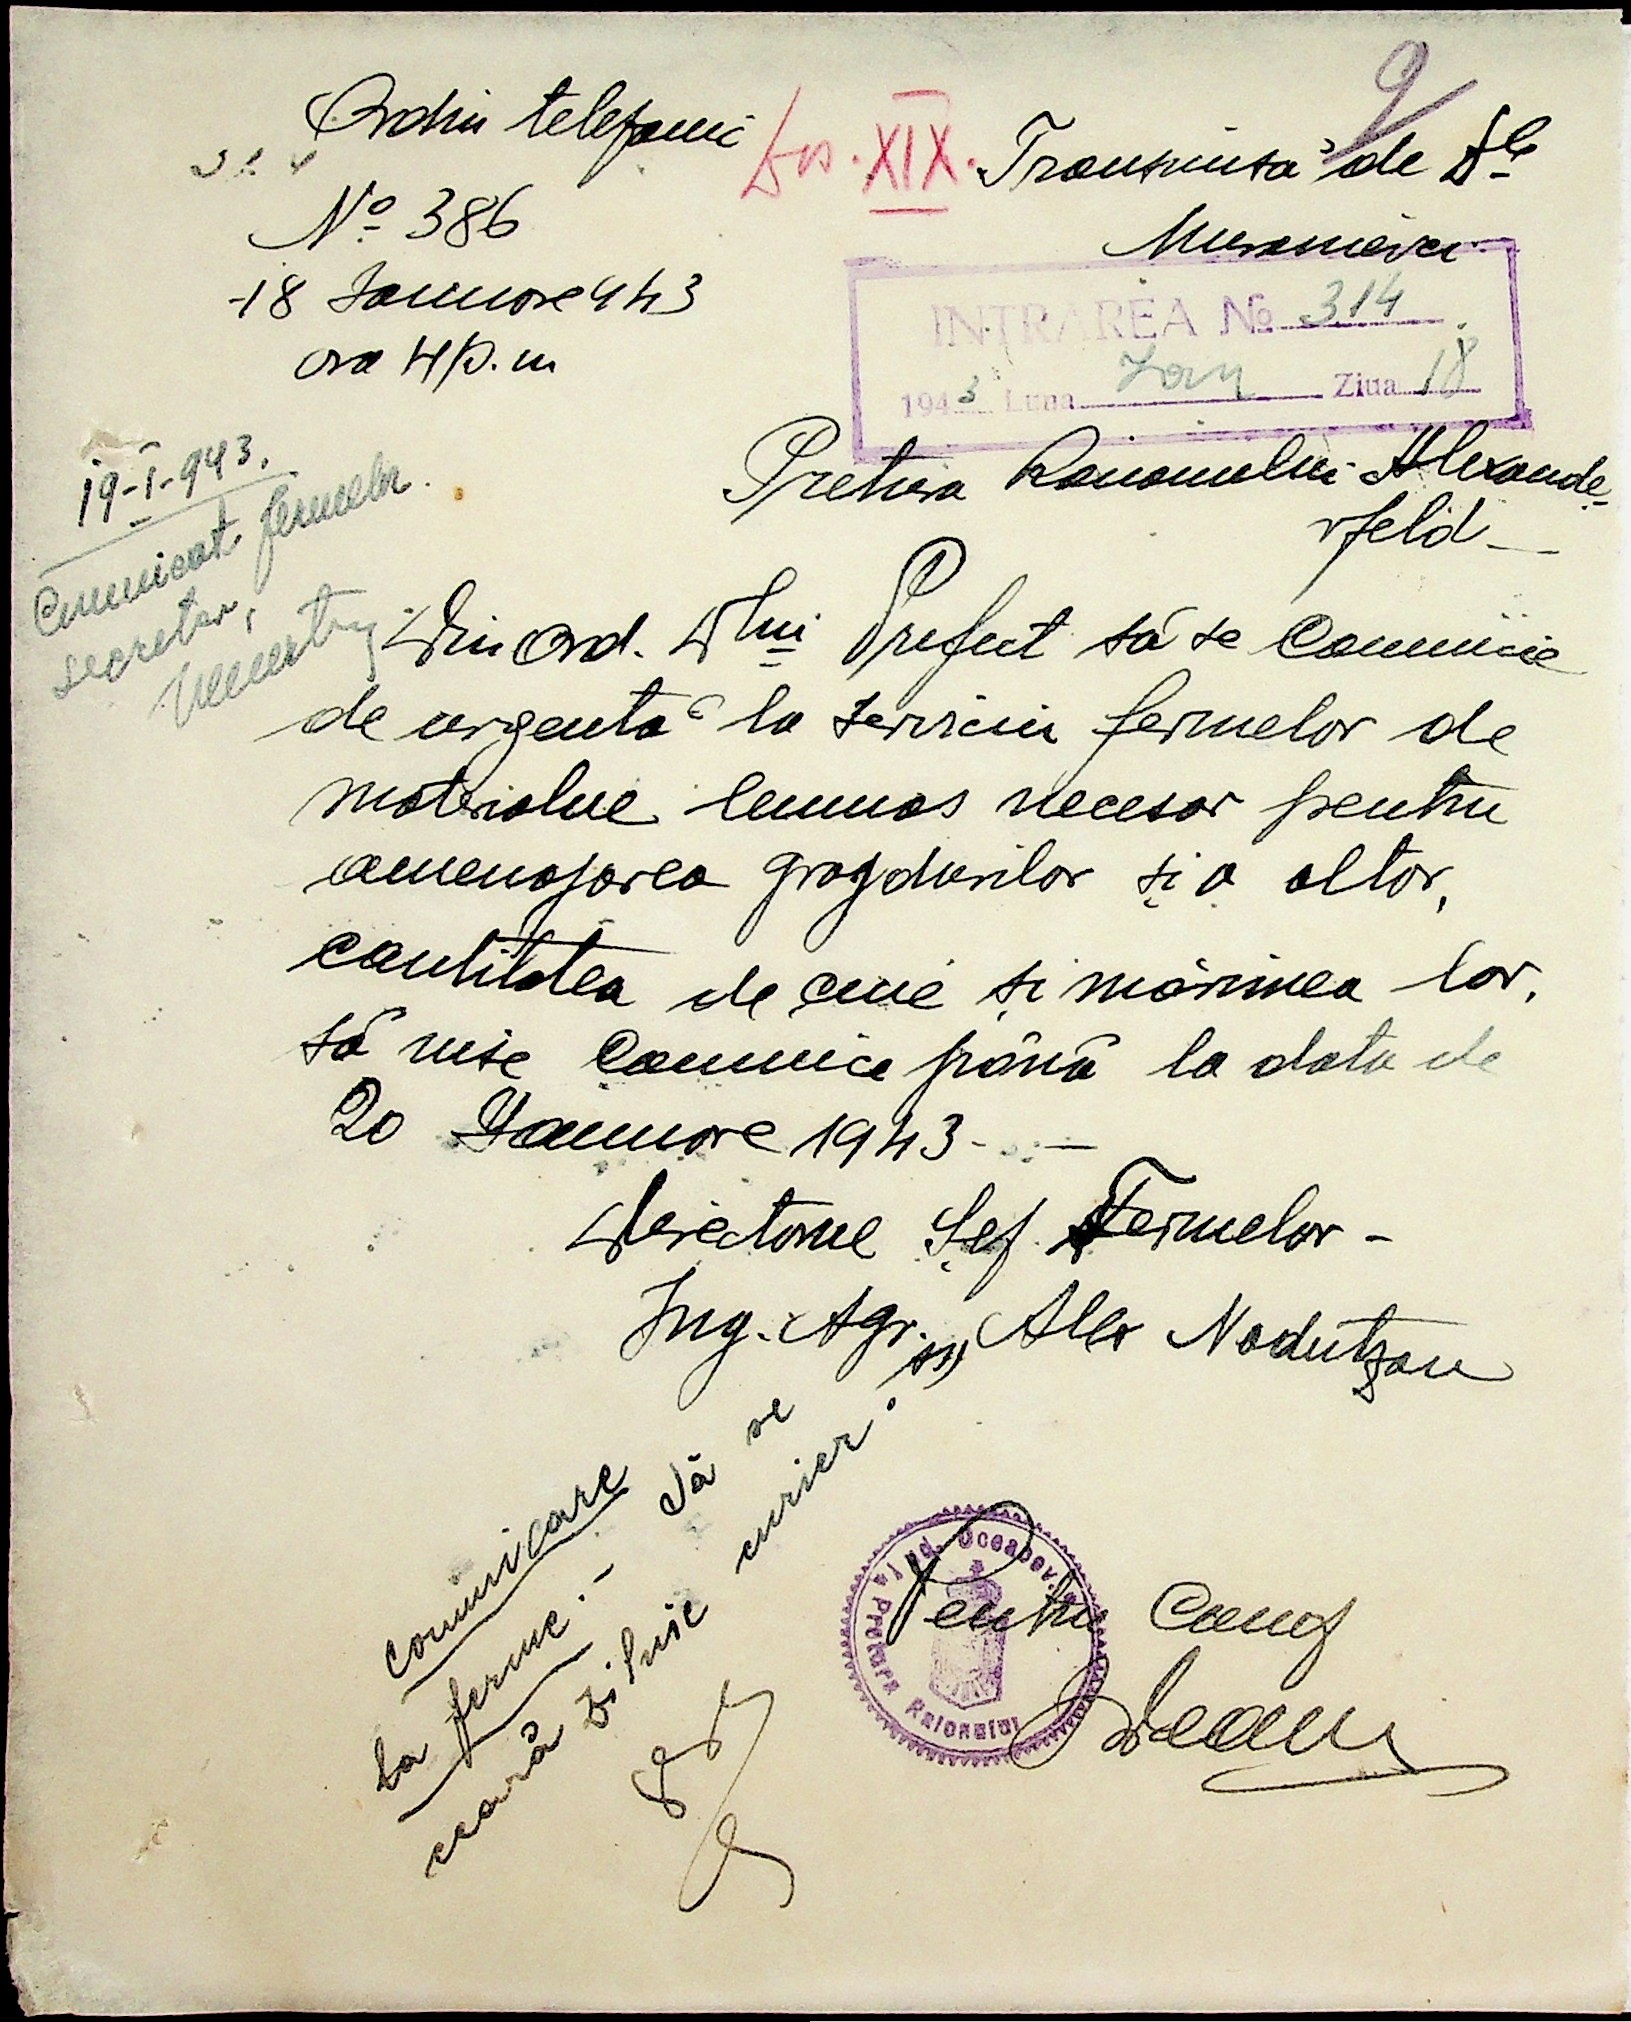 9
Ordin telefonic
Dos. XIX.
Transmisă de D-le
No 386
18 Ianuare 943
ora 4 p.m
INTRAREA No 314
1943 Luna Ian Ziua 18
Pretura Raionului Alexande-
rfeld
19-I-943.
Comunicat fermelor
secretar,
Din Ord. D-lui Prefect să se Comunice
de urgentă la servicu fermelor de
materialue lemnos necesor pentru
amenajarea grajdurilor și a altor,
cantitatea de cuie și mărimea lor,
să nise Comunice până la data de
20 Ianuare 1943.-
Directorue Șef Fermelor -
Ing. Agr. ss) Alex Nadutzan
comunicare
la ferme.- Să se
ceară zilnic curier.
Pretura Raionului
Jud. Oceacov
Pentru Conf